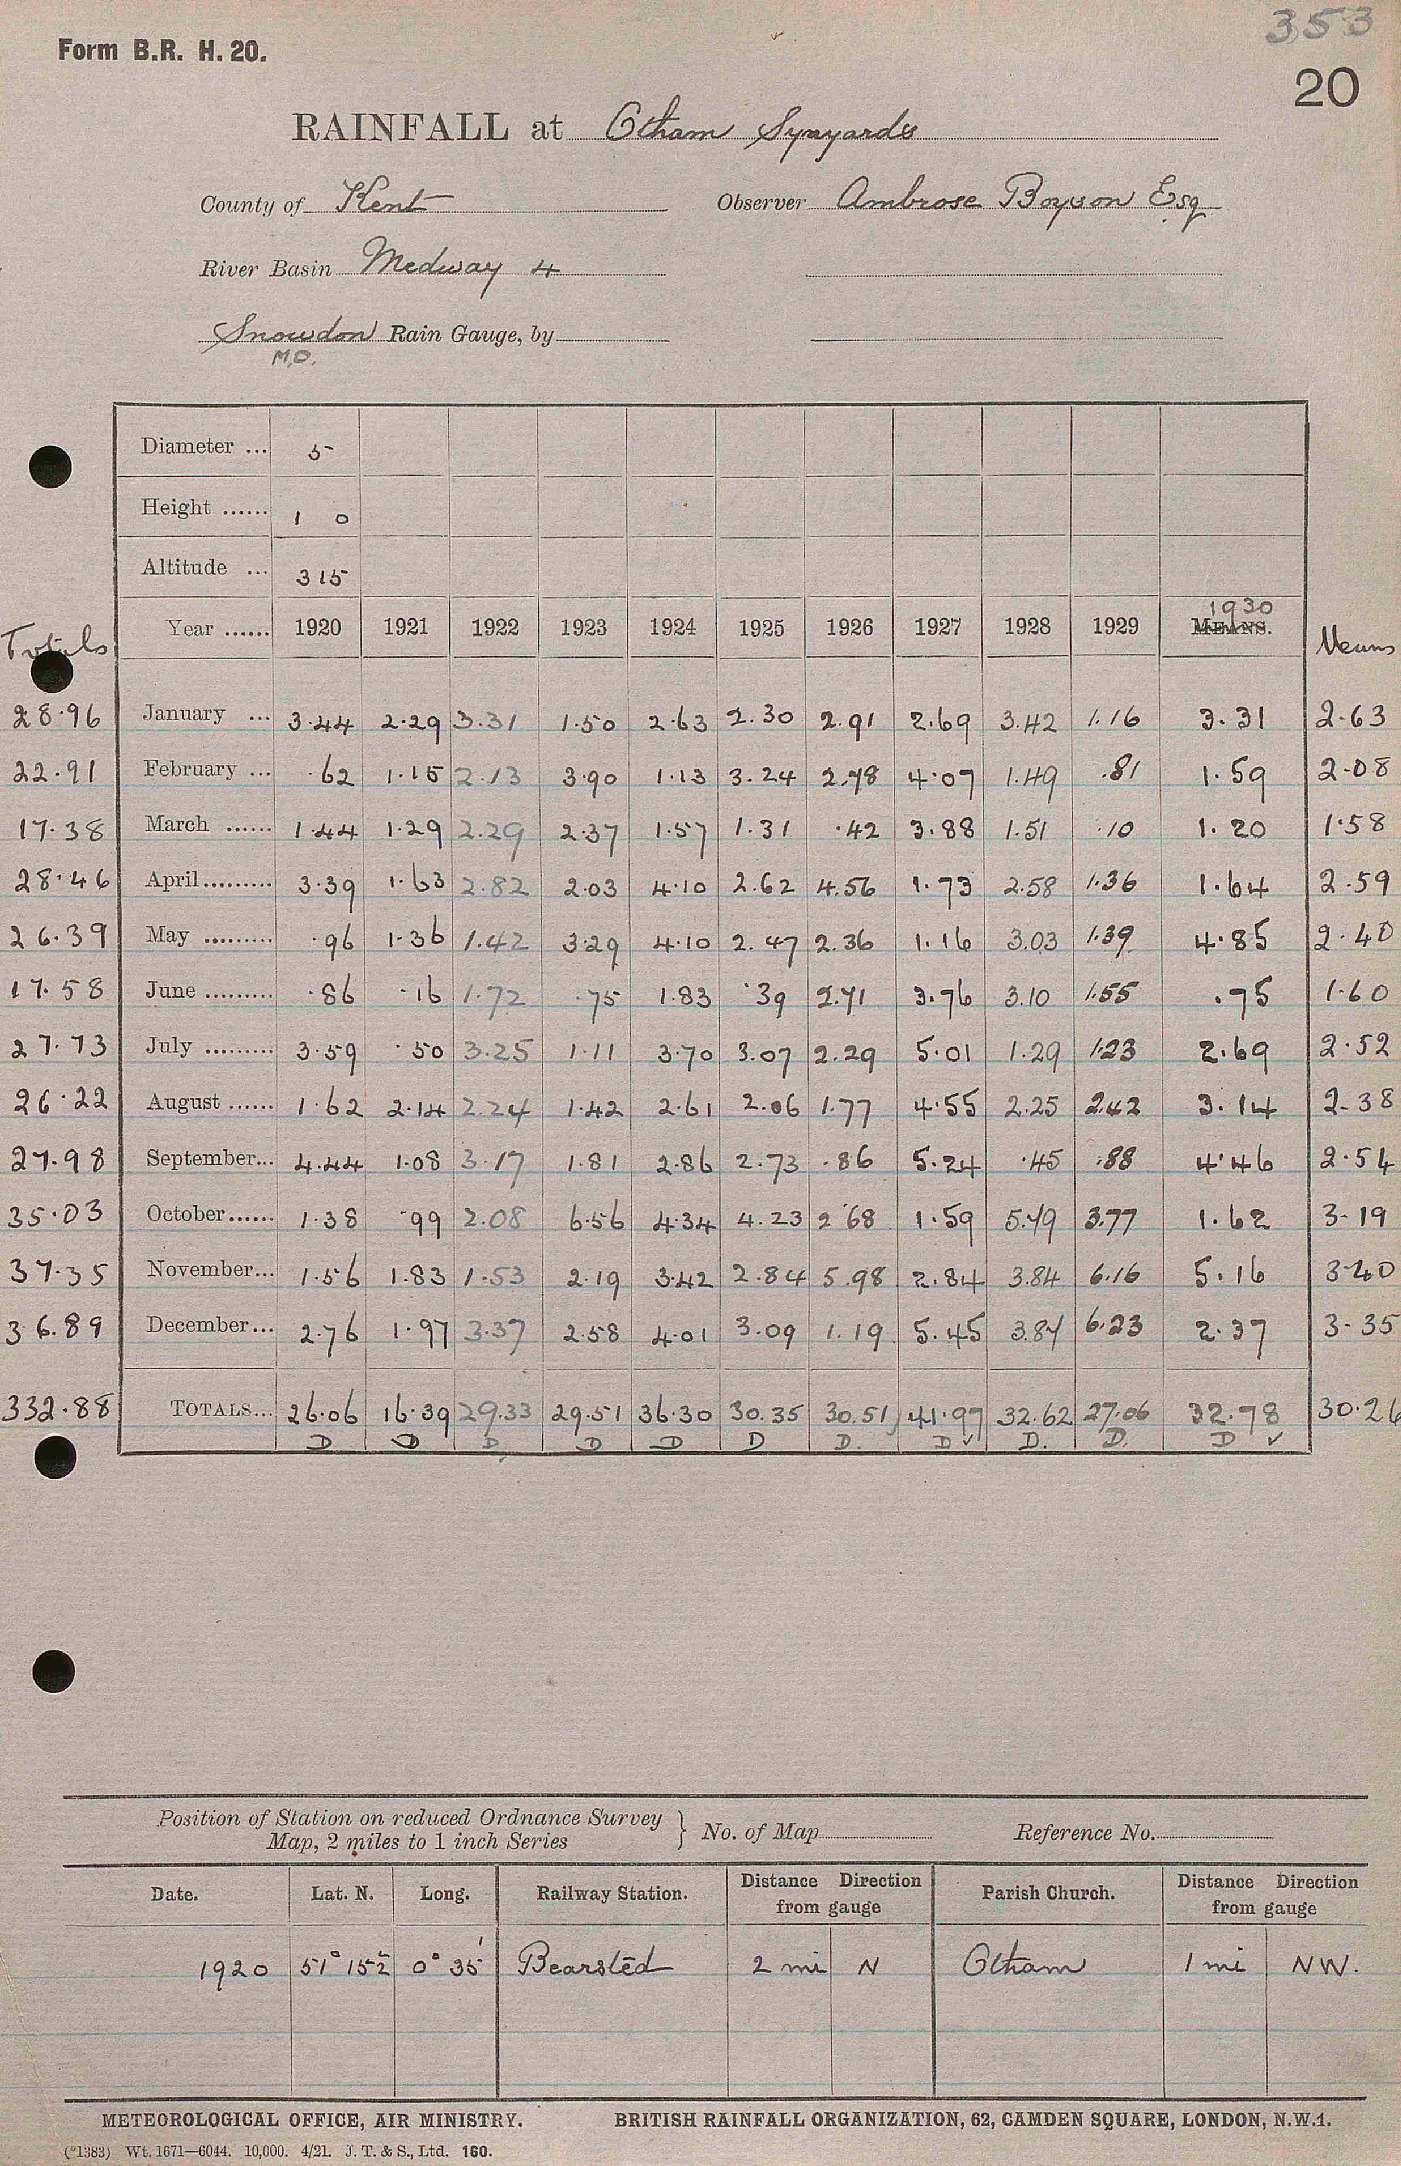 353
Form B.R. H. 20.
20
RAINFALL at Otham Synyards
County of Kent Observer Ambrose Boyson Esq
River Basin Medway 4
Snowdon Rain Gauge, by
M.O.
Diameter ... 5
Height ...... 1 0
Altitude ... 315
1930
Totals Year ...... 1920 1921 1922 1923 1924 1925 1926 1927 1928 1929 MEANS. Means
28.96 January ... 3.44 2.29 3.31 1.50 2.63 2.30 2.91 2.69 3.42 1.16 3.31 2.63
22.91 February ... .62 1.15 2.13 3.90 1.13 3.24 2.78 4.07 1.49 .81 1.59 2.08
17.38 March ...... 1.44 1.29 2.29 2.37 1.57 1.31 .42 3.88 1.51 .10 1.20 1.58
28.46 April ......... 3.39 1.63 2.82 2.03 4.10 2.62 4.56 1.73 2.58 1.36 1.64 2.59
26.39 May ......... .96 1.36 1.42 3.29 4.10 2.47 2.36 1.16 3.03 1.39 4.85 2.40
17.58 June ......... .86 .16 1.72 .75 1.83 .39 2.71 3.76 3.10 1.55 .75 1.60
27.73 July ......... 3.59 .50 3.25 1.11 3.70 3.07 2.29 5.01 1.29 1.23 2.69 2.52
26.22 August ...... 1.62 2.14 2.24 1.42 2.61 2.06 1.77 4.55 2.25 2.42 3.14 2.38
27.98 September... 4.44 1.08 3.17 1.81 2.86 2.73 .86 5.24 .45 .88 4.46 2.54
35.03 October...... 1.38 .99 2.08 6.56 4.34 4.23 2.68 1.59 5.79 3.77 1.62 3.19
37.35 November... 1.56 1.83 1.53 2.19 3.42 2.84 5.98 2.84 3.84 6.16 5.16 3.40
36.89 December... 2.76 1.97 3.37 2.58 4.01 3.09 1.19 5.45 3.87 6.23 2.37 3.35
332.88 TOTALS... 26.06 16.39 29.33 29.51 36.30 30.35 30.51 41.97 32.62 27.06 32.78 30.26
D D D D D D D. D ✓ D. D. D ✓
Position of Station on reduced Ordnance Survey
Map, 2 miles to 1 inch Series } No. of Map Reference No.
Date. Lat. N. Long. Railway Station. Distance Direction from gauge Parish Church. Distance Direction from gauge
1920 51° 15½ 0° 35' Bearsted 2 mi N Otham 1 mi NW.
METEOROLOGICAL OFFICE, AIR MINISTRY. BRITISH RAINFALL ORGANIZATION, 62, CAMDEN SQUARE, LONDON, N.W.1.
(*1383) Wt. 1671—6044. 10,000. 4/21. J. T. & S., Ltd. 160.